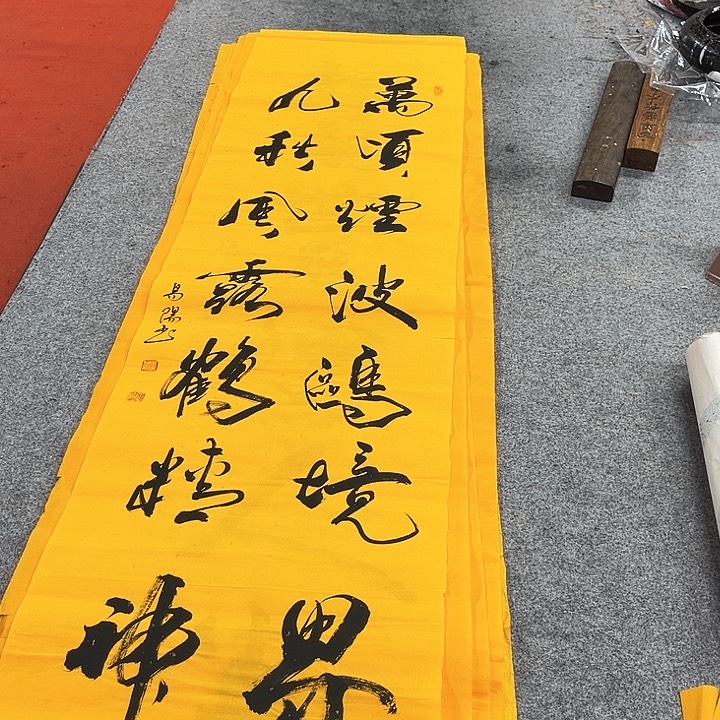 萬頃煙波鷗境界
九秋風露鶴精神
易陽书